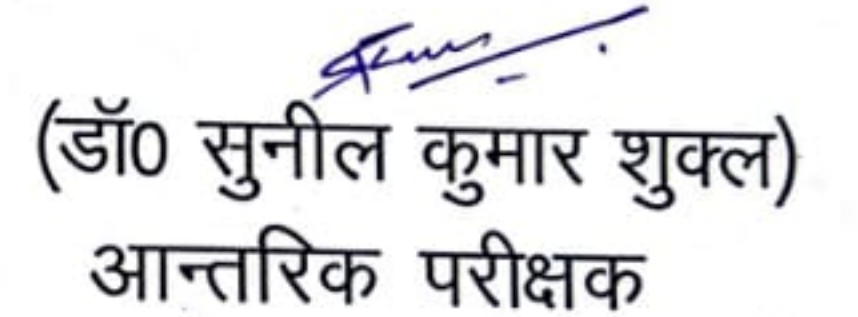 (डॉ0 सुनील कुमार शुक्ल)
आन्तरिक परीक्षक